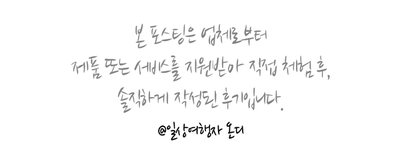 본 포스팅은 업체로부터
제품 또는 서비스를 지원받아 직접 체험 후,
솔직하게 작성된 후기입니다.
@일상여행자 온디